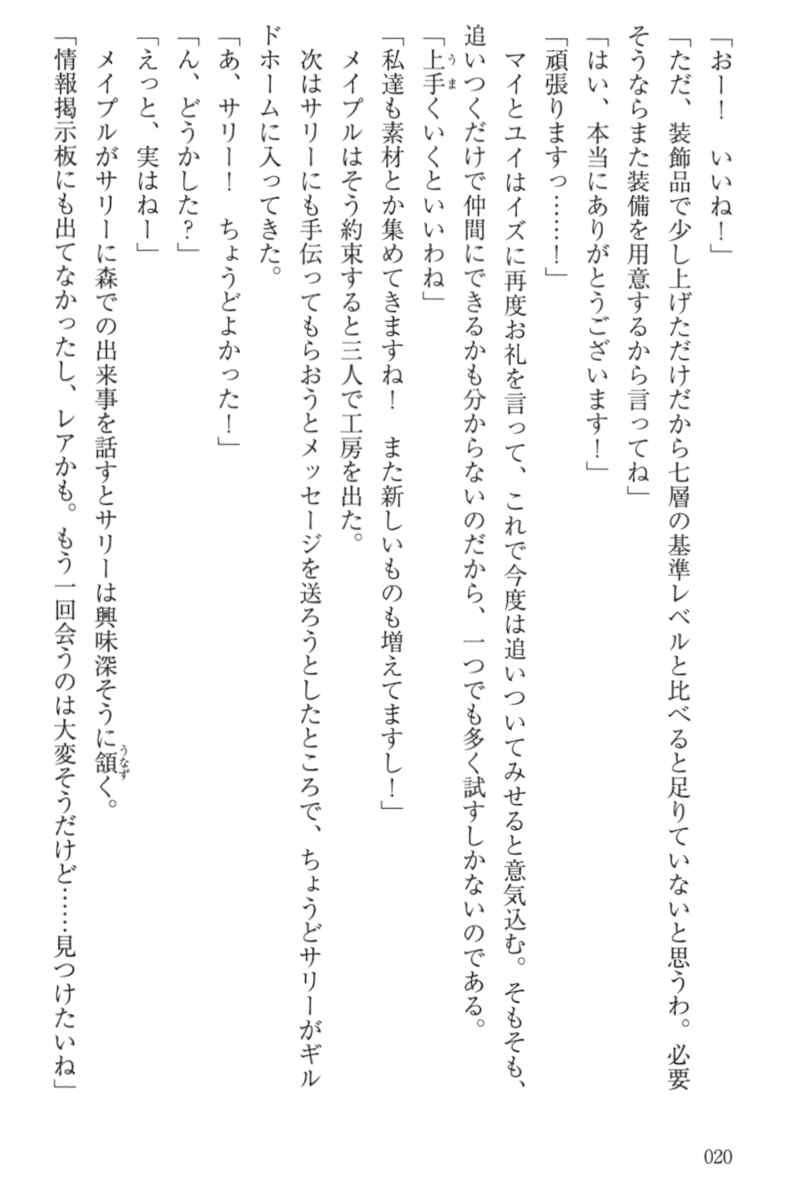 「おー！　いいね！」
「ただ、装飾品で少し上げただけだから七層の基準レベルと比べると足りていないと思うわ。必要
そうならまた装備を用意するから言ってね」
「はい、本当にありがとうございます！」
「頑張りますっ……！」
　マイとユイはイズに再度お礼を言って、これで今度は追いついてみせると意気込む。そもそも、
追いつくだけで仲間にできるかも分からないのだから、一つでも多く試すしかないのである。
「上手くいくといいわね」
「私達も素材とか集めてきますね！　また新しいものも増えてますし！」
　メイプルはそう約束すると三人で工房を出た。
　次はサリーにも手伝ってもらおうとメッセージを送ろうとしたところで、ちょうどサリーがギル
ドホームに入ってきた。
「あ、サリー！　ちょうどよかった！」
「ん、どうかした？」
「えっと、実はねー」
　メイプルがサリーに森での出来事を話すとサリーは興味深そうに頷く。
「情報掲示板にも出てなかったし、レアかも。もう一回会うのは大変そうだけど……見つけたいね」
うま
うなず
020